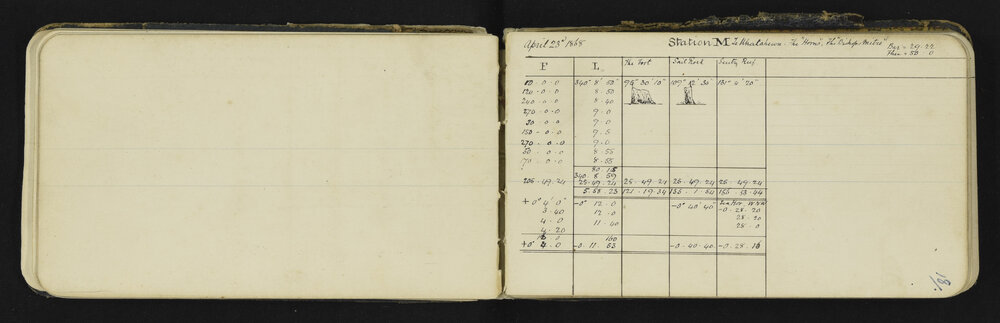 April 23d 1868 Station M Te Whatahewa. The "Horns", The "Bishop's Mitre" Bar = 29.22
Ther = 58 0
F L The Tort Sail Rock Reef
340° 8' 50" 95° 30' 10" 109° 12' 30" 131° 4' 20"
120 . 0 . 0 8 . 50
240 . 0 . 0 8 . 40
270 . 0 . 0 9 . 0
30 . 0 . 0 9 . 0
150 . 0 . 0 9 . 5
270 . 0 . 0 9 . 0
50 . 0 . 0 8 . 55
70 . 0 . 0 8 . 55
80 15
340 . 8 . 59
205 . 49 . 24 25 . 49 . 24 25 . 49 . 24 25 . 49 . 24 25 . 49 . 24
5 . 58 . 23 121 . 19 . 34 135 . 1 . 54 156 . 53 . 44
+ 0° 4' 0" -0° 12 . 0 -0° 40' 40"
3 . 40 12 . 0 -0 . 28 . 20
4 . 0 11 . 40 28 . 20
4 . 20 28 . 0
16 0 160
+0° 4 . 0 -0 . 11 . 53 -0 . 40 . 40 -0 . 28 . 16
181.